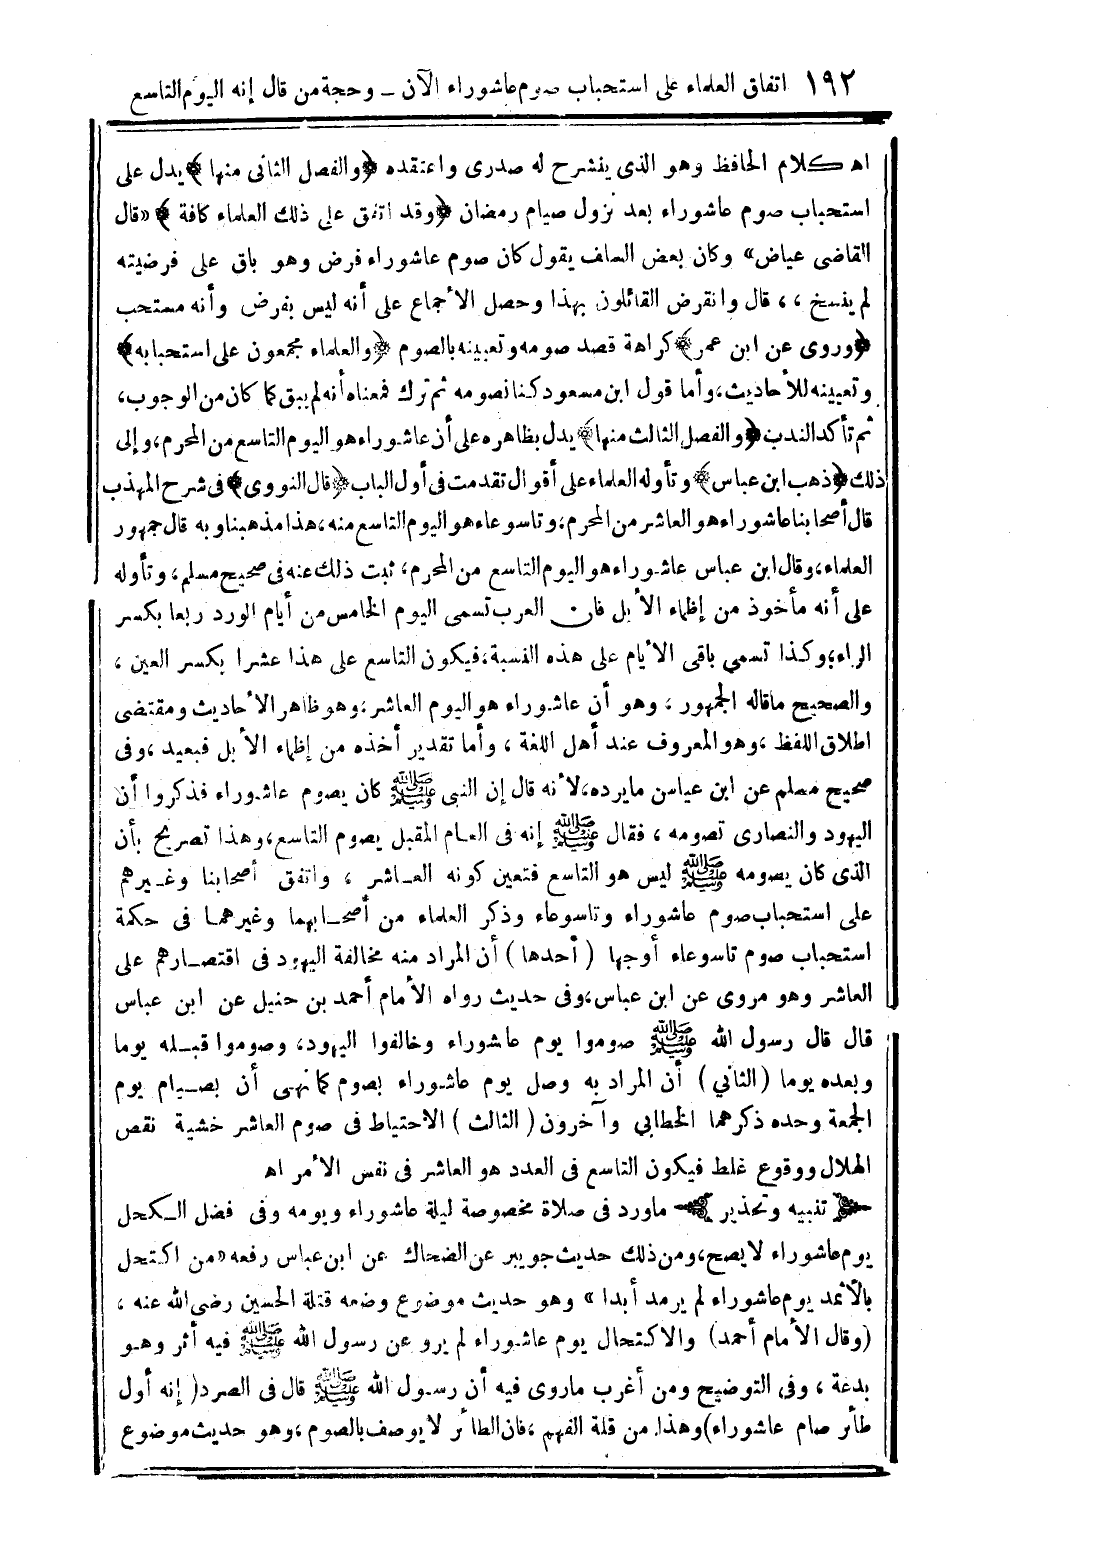 ١٩٢ اتفاق العلماء على استحباب صوم عاشوراء الآن ــ وحجة من قال إنه اليوم التاسع
اه كلام الحافظ وهو الذى ينشرح له صدرى واعتقده ﴿والفصل الثانى منها﴾ يدل على
استحباب صوم عاشوراء بعد نزول صيام رمضان ﴿وقد اتفق على ذلك العلماء كافة﴾ «قال
القاضى عياض» وكان بعض السلف يقول كان صوم عاشوراء فرض وهو باق على فرضيته
لم ينسخ ،، قال وانقرض القائلون بهذا وحصل الأجماع على أنه ليس بفرض وأنه مستحب
﴿وروى عن ابن عمر﴾ كراهة قصد صومه وتعيينه بالصوم ﴿والعلماء مجمعون على استحبابه﴾
وتعيينه للأحاديث، وأما قول ابن مسعود كنا نصومه ثم ترك فمعناه أنه لم يبق كما كان من الوجوب،
ثم تأكد الندب ﴿والفصل الثالث منها﴾ يدل بظاهره على أن عاشوراء هو اليوم التاسع من المحرم، وإلى
ذلك ﴿ذهب ابن عباس﴾ وتأوله العلماء على أقوال تقدمت فى أول الباب ﴿قال النووى﴾ فى شرح المهذب
قال أصحابنا عاشوراء هو العاشر من المحرم؛ وتاسوعاء هو اليوم التاسع منه، هذا مذهبنا وبه قال جمهور
العلماء، وقال ابن عباس عاشوراء هو اليوم التاسع من المحرم، ثبت ذلك عنه فى صحيح مسلم، وتأوله
على أنه مأخوذ من إظماء الأبل فان العرب تسمى اليوم الخامس من أيام الورد ربعا بكسر
الراء؛ وكذا تسمي باقى الأيام على هذه النسبة، فيكون التاسع على هذا عشرا بكسر العين ،
والصحيح ماقاله الجمهور ، وهو أن عاشوراء هو اليوم العاشر؛ وهو ظاهر الأحاديث ومقتضى
اطلاق اللفظ ، وهو المعروف عند أهل اللغة ، وأما تقدير أخذه من إظماء الأبل فبعيد ، وفى
صحيح مسلم عن ابن عباس مايرده، لأنه قال إن النبى ﷺ كان يصوم عاشوراء فذكروا أن
اليهود والنصارى تصومه ، فقال ﷺ إنه فى العام المقبل يصوم التاسع، وهذا تصريح بأن
الذى كان يصومه ﷺ ليس هو التاسع فتعين كونه العاشر ، واتفق أصحابنا وغيرهم
على استحباب صوم عاشوراء وتاسوعاء وذكر العلماء من أصحابهما وغيرهما فى حكمة
استحباب صوم تاسوعاء أوجها (أحدها) أن المراد منه مخالفة اليهود فى اقتصارهم على
العاشر وهو مروى عن ابن عباس، وفى حديث رواه الأمام أحمد بن حنبل عن ابن عباس
قال قال رسول الله ﷺ صوموا يوم عاشوراء وخالفوا اليهود، وصوموا قبله يوما
وبعده يوما (الثاني) أن المراد به وصل يوم عاشوراء بصوم كما نهى أن يصيام يوم
الجمعة وحده ذكرهما الخطابي وآخرون (الثالث) الاحتياط فى صوم العاشر خشية نقص
الهلال ووقوع غلط فيكون التاسع فى العدد هو العاشر فى نفس الأمر اه
﴿تنبيه وتحذير﴾ ماورد فى صلاة مخصوصة ليلة عاشوراء ويومه وفى فضل الكحل
يوم عاشوراء لا يصح، ومن ذلك حديث جويبر عن الضحاك عن ابن عباس رفعه «من اكتحل
بالأثمد يوم عاشوراء لم يرمد أبدا» وهو حديث موضوع وضعه قتلة الحسين رضى الله عنه ،
(وقال الأمام أحمد) والاكتحال يوم عاشوراء لم يرو عن رسول الله ﷺ فيه أثر وهو
بدعة ، وفى التوضيح ومن أغرب ماروى فيه أن رسول الله ﷺ قال فى الصرد (إنه أول
طائر صام عاشوراء) وهذا من قلة الفهم ، فان الطائر لا يوصف بالصوم ، وهو حديث موضوع